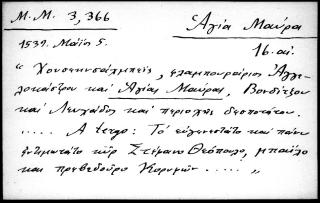 Μ.Μ. 3,366
Ἁγία Μαύρα
1539. Μαΐῃ 5.
16. αἰ.
" Χουσεηνσάχμπεϊς, φλαμπουράριος Ἀγγε-
λοκάστρου καὶ Ἁγίας Μαύρας, Βονδίτζου
καὶ Λευκάδος καὶ περιοχῆς δεσποτάτου.
..... A tergo: Τῷ εὐγενεστάτῳ καὶ πάνυ
ἐντιμωτάτῳ κὺρ Στέφανο Θεόπουλο, μπαΐλο
καὶ προβεδοῦρο Κορυφῶν ..... "